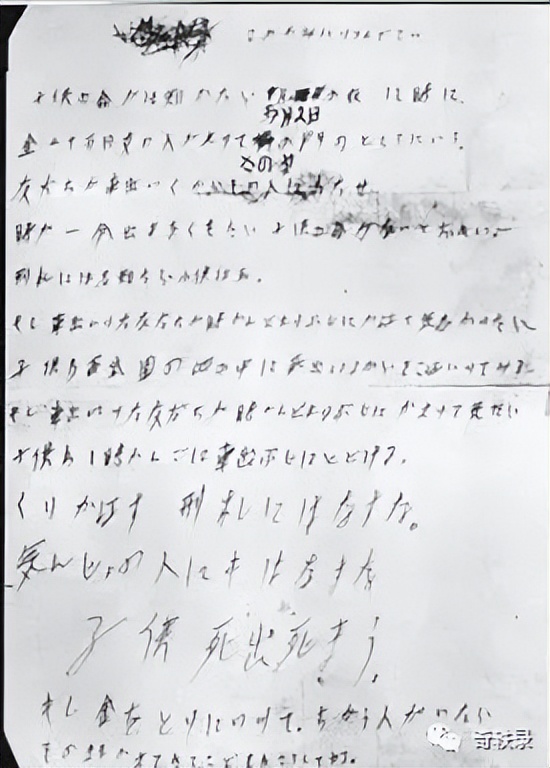 このかみにツツんでこい
子供の命がほ知かたら 五月2日の夜12時に、
金二十万円女の人がもツてさのヤの門のところにいろ。
友だちが車出いくからその人にわたせ
時が一分出もをくれたら子供の命がないとおもい。
刑札には名知たら小供は死。
もし車出いツた友だちが時かんどおりぶじにかえて気名かツたら
子供わ西武園の池の中に死出いるからそこエいツてみろ
もし車出いツた友だちが時かんどおりぶじにかえツて気たら
子供わ1時かんごに車出ぶじにとどける。
くりかえす 刑札にはなすな。
気んじょの人にもはなすな
子供死出死まう。
もし金をとりにいツて、ちがう人がいたら
そのままかえてきてこどもわころしてヤる。